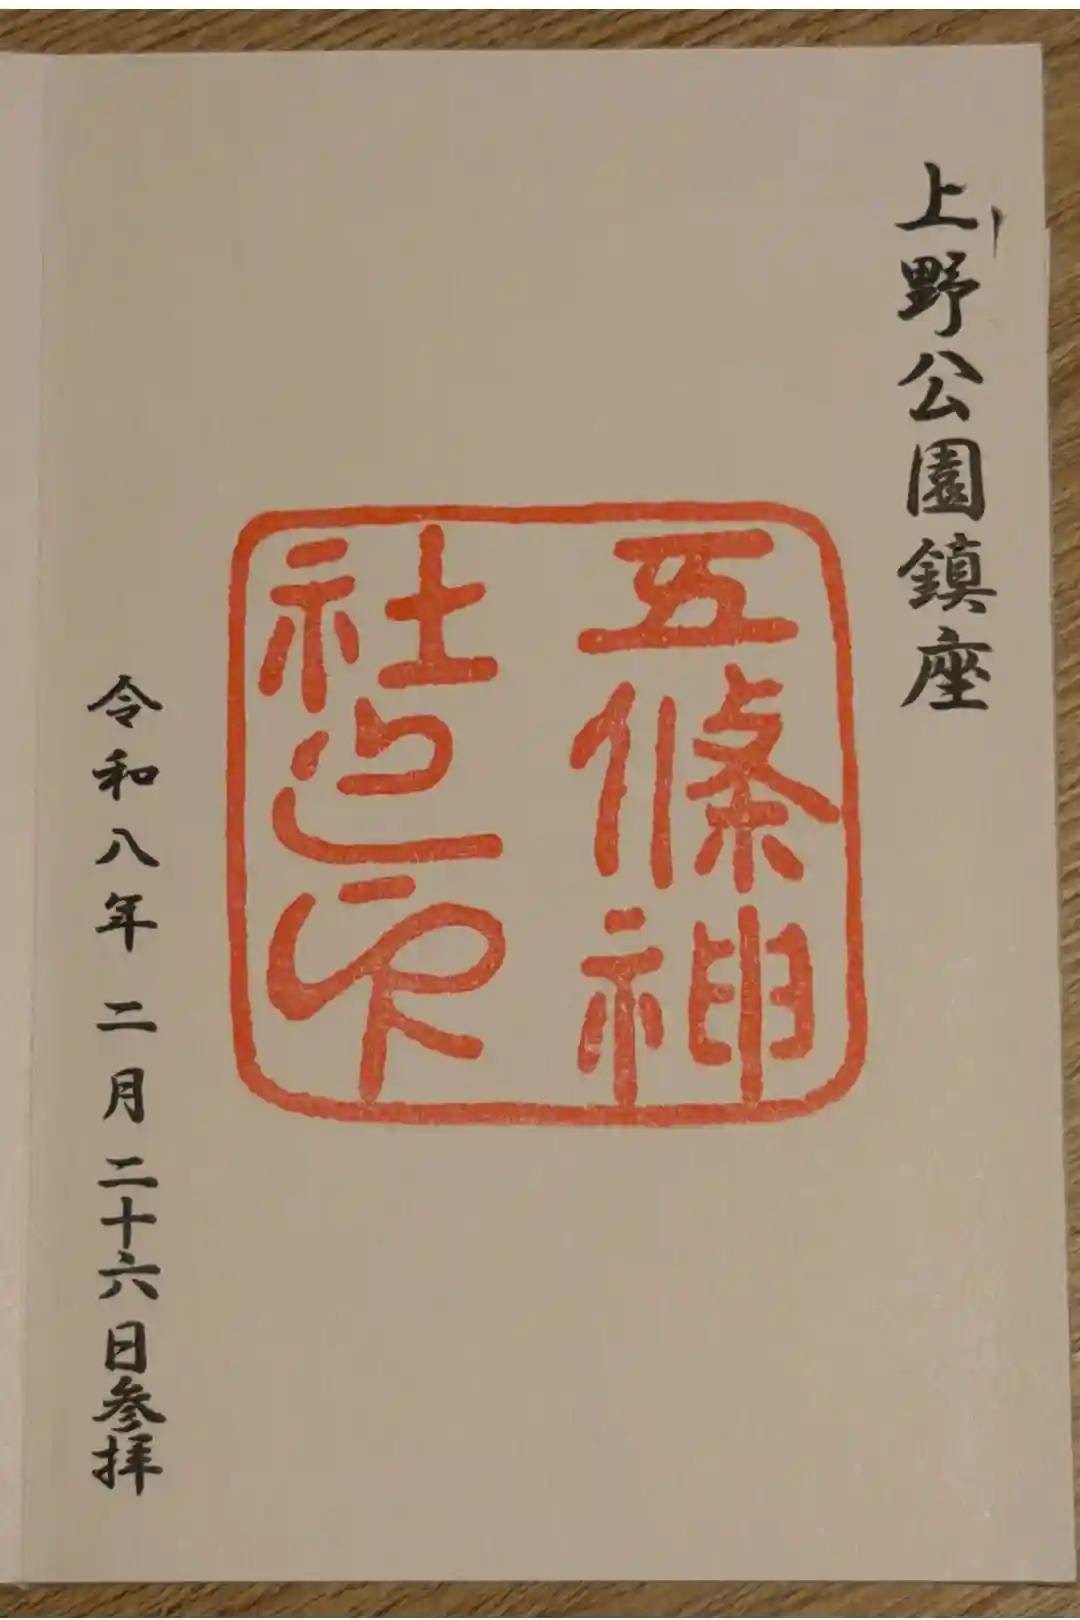 上野公園鎮座
五條神
社之印
令和八年二月二十六日参拝